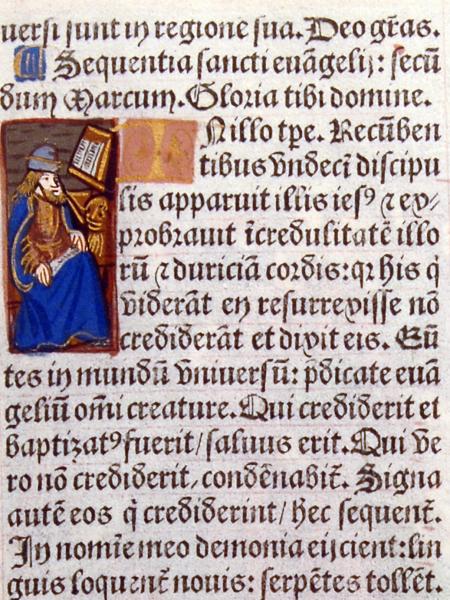 uersi sunt in regione sua. Deo gr̄as.
Sequentia sancti euāgelij: secū
dum Marcum. Gloria tibi domine.
N illo tp̄e. Recūben
tibus vndecī discipu
lis apparuit illis iesꝰ ⁊ ex-
probrauit īcredulitatē illo
rū ⁊ duriciā cordis: qr his q̇
viderāt eū resurrexisse nō
crediderāt et dixit eis. Eū
tes in mundū vniuersū: p̄dicate euā
geliū om̄i creature. Qui crediderit et
baptizatꝰ fuerit/ saluus erit. Qui ve
ro nō crediderit, condēnabit̄. Signa
autē eos q̇ crediderint/ hec sequent̄.
In nomīe meo demonia eijcient: lin
guis loquent̄ nouis: serpētes tollēt.